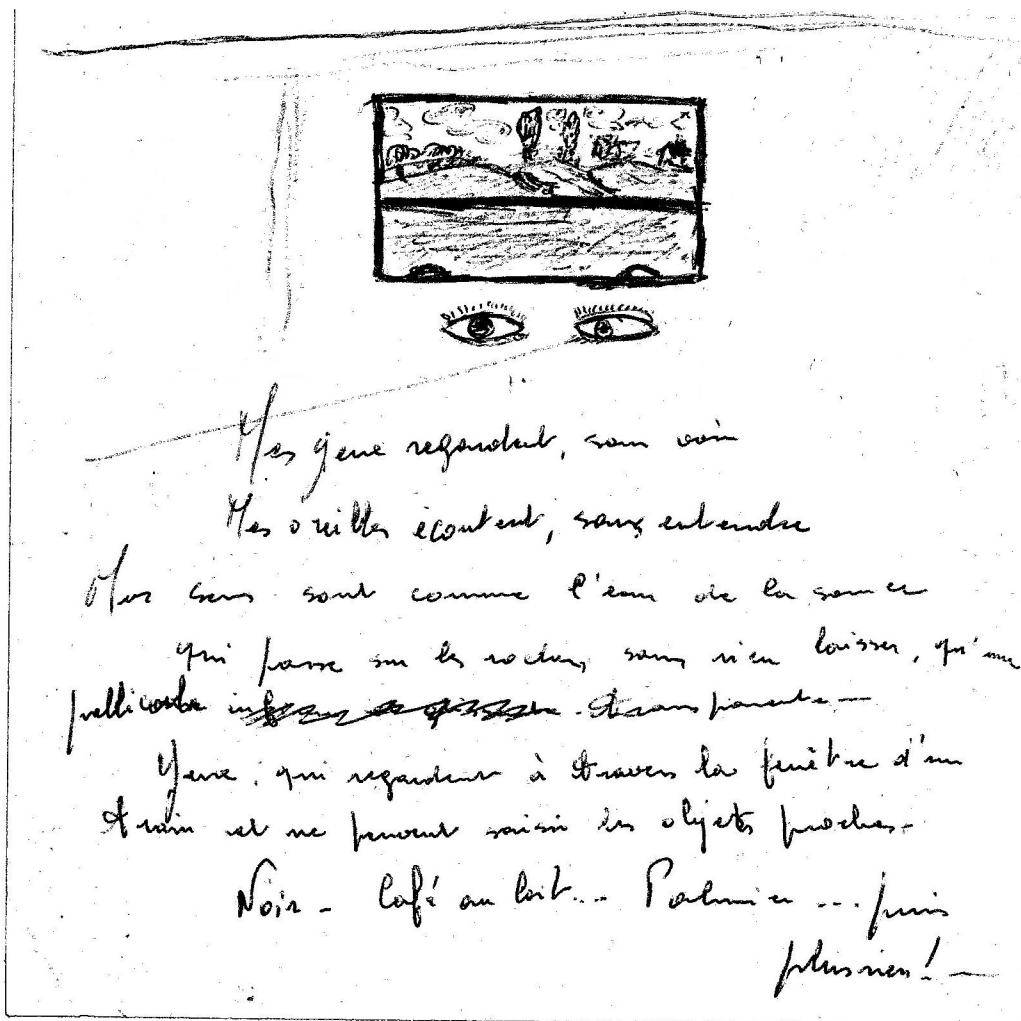 Mes yeux regardent, sans voir
Mes oreilles écoutent, sans entendre
Mes sens sont comme l'eau de la source
qui passe sur les rochers, sans rien laisser, qu'une
pellicule transparente —
Yeux, qui regardent à travers la fenêtre d'un
train et ne peuvent saisir les objets proches -
Noir - Café au lait... Palmier ... puis
plus rien! —